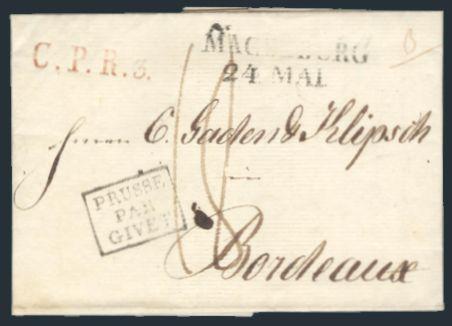 C.P.R.3.
MAGDEBURG
24 MAI
Herren C. Gaden & Klipsch
in
PRUSSE
PAR
GIVET
18
Bordeaux